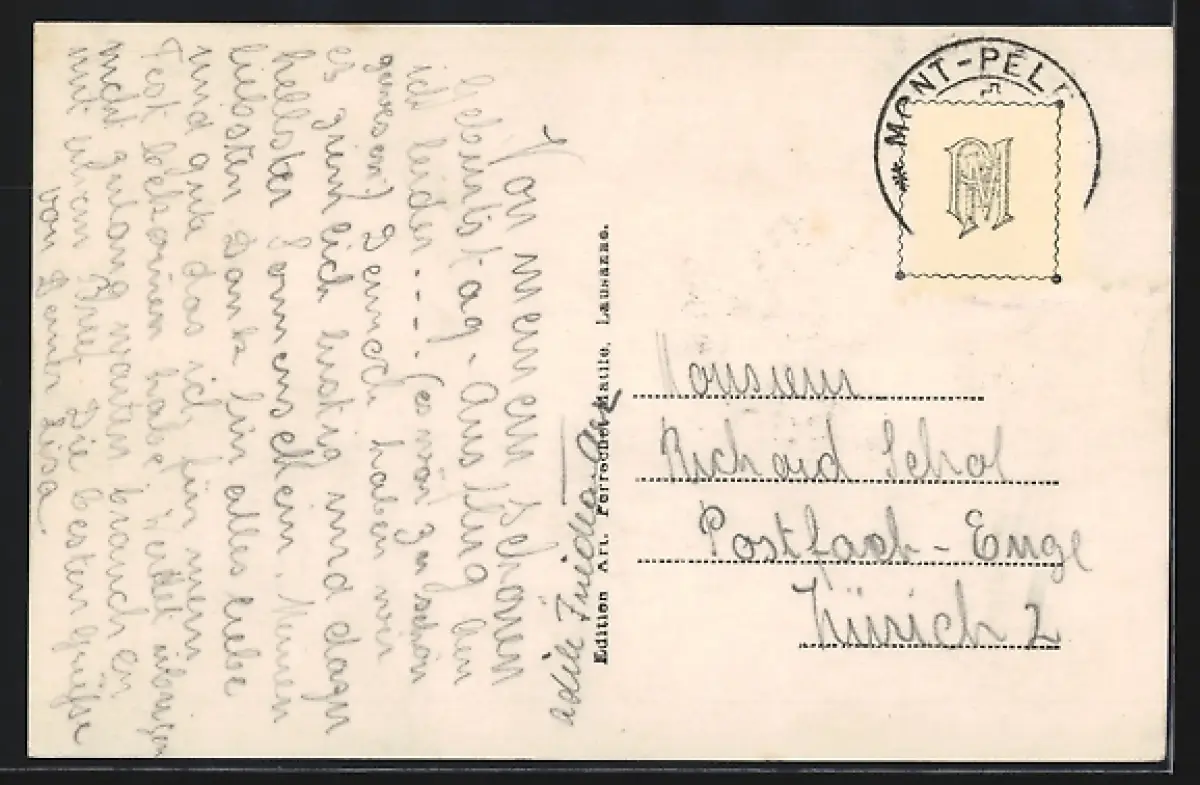 Von meinem schönen
Geburtstag-Ausflug bin
ich leider - - - (es wär zu schön
gewesen!) Dennoch haben wir
es ziemlich lustig und dazu
hellsten Sonnenschein. Meinen
liebsten Dank für alles liebe
und gute das ich für mein
Fest bekommen habe.
nicht zulang warten brauch en
mit ihrem Brief. Die besten Grüsse
von Deiner Lisa.
Adile Frieda
MONT-PÉL
PM
Edition Art. Perrochet-Matile, Lausanne.
Monsieur
Richard Schol
Postfach - Enge
Zürich 2